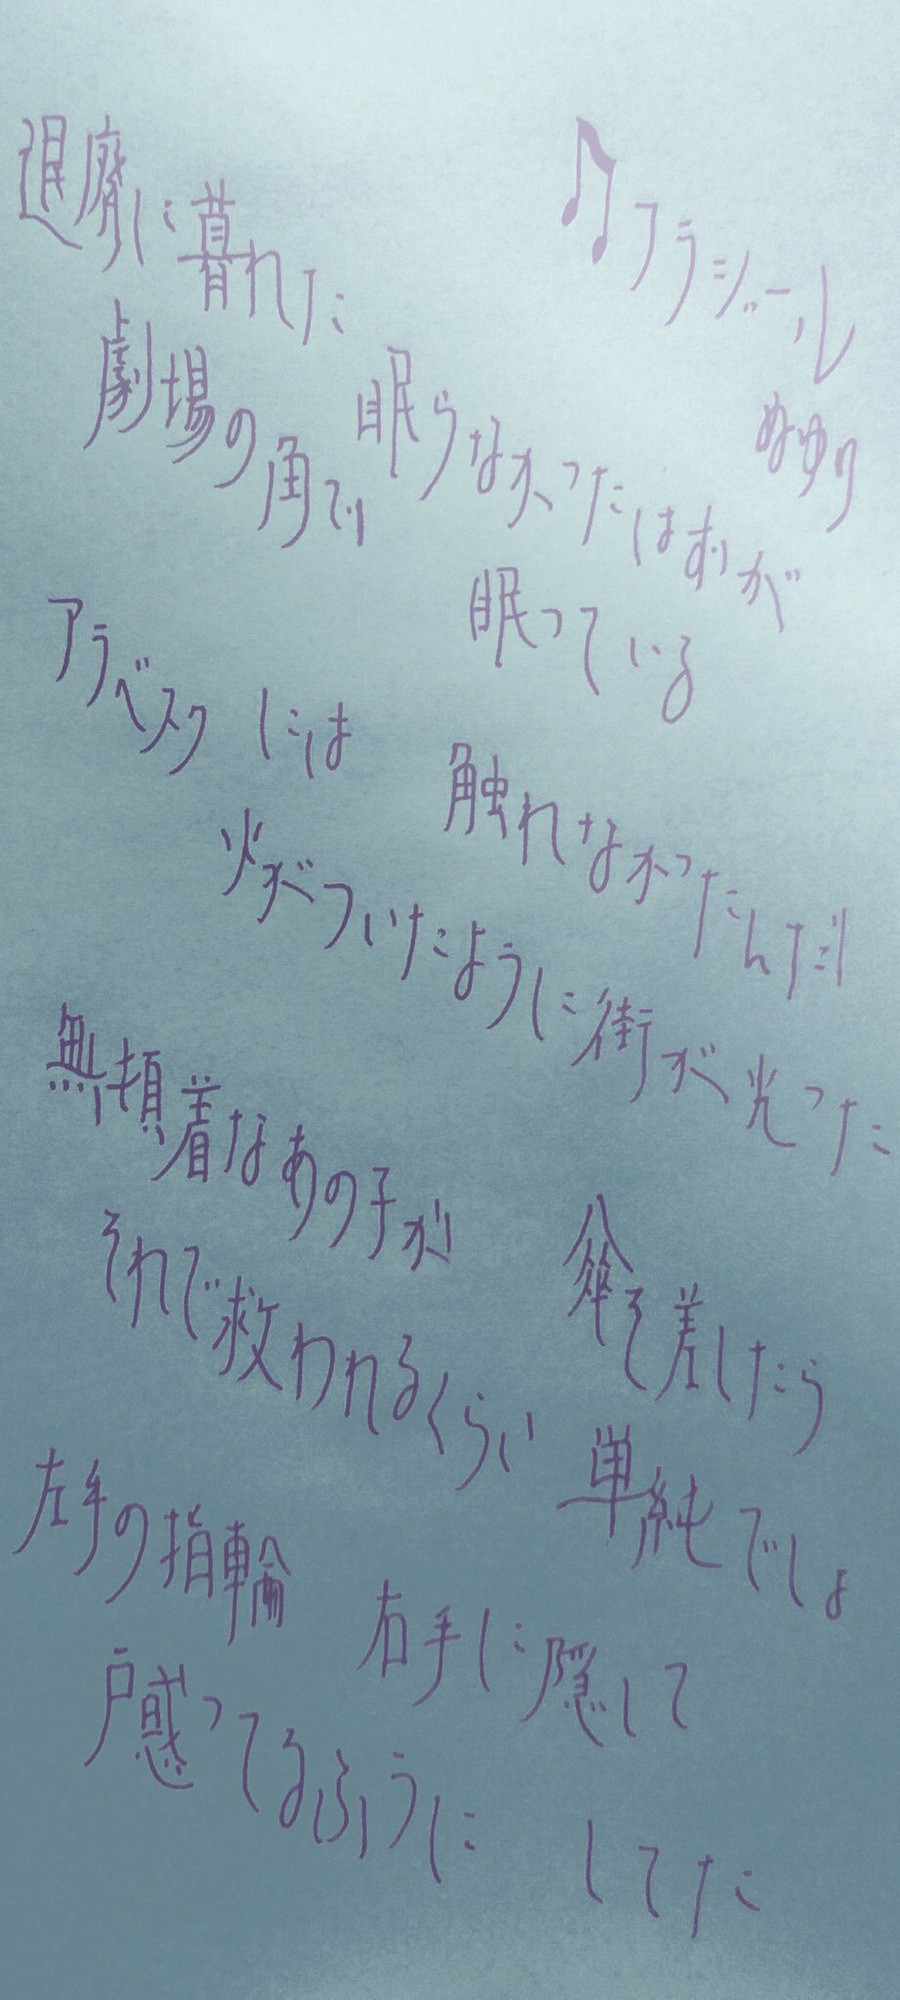 ♪フラジール
ぬゆり
退廃に暮れた
劇場の角で
眠らなかったはずが
眠っている
アラベスクには
触れなかったんだ
火がついたように街が光った
無頓着なあの子が
傘を差したら
それで救われるくらい
単純でしょ
左手の指輪
右手に隠して
戸惑ってるふうに してた